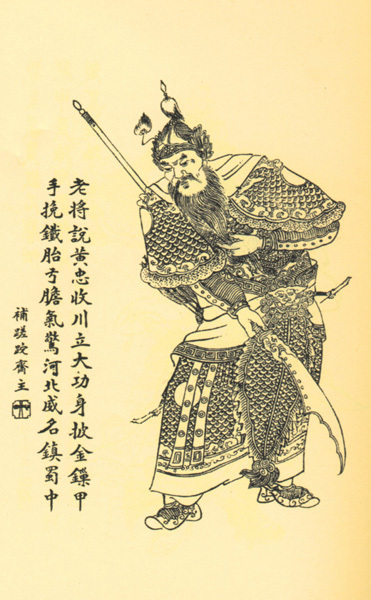 老將說黃忠收川立大功身披金鏁甲
手挽鐵胎弓膽氣驚河北威名鎮蜀中
補蹉跎齋主